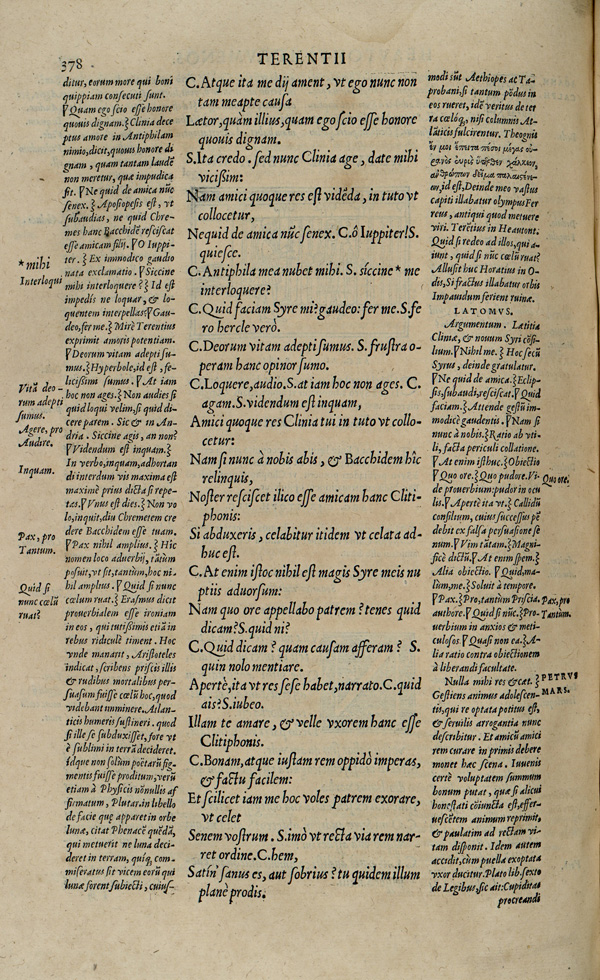 378
TERENTII
ditur, eorum more qui boni
quippiam consecuti sunt.
Quam ego scio esse honore
quouis dignam.} Clinia dece
ptus amore in Antiphilam
nimio, dicit, quouis honore di
gnam, quam tantam laudē
non meretur, quæ impudica
sit. Ne quid de amica nūc
senex.} Aposiopesis est, vt
subaudias, ne quid Chre-
mes hanc Bacchidē resciscat
esse amicam filij. O Iuppi-
ter.} Ex immodico gaudio
nata exclamatio. Siccine
mihi interloquere?} Id est
impedis ne loquar, & lo-
quentem interpellas. Gau-
deo, fer me.} Mirè Terentius
exprimit amoris potentiam.
Deorum vitam adepti su-
mus.} Hyperbole, id est, fe-
licissimi sumus. At iam
hoc non ages.} Non audies si
quid loqui velim, si quid di-
cere parem. Sic & in An-
dria. Siccine agis, an non?
Videndum est inquam.}
In verbo, inquam, adhortan
di interdum vis maxima est
maximè prius dicta si repe-
tas. Vnus est dies.} Non vo
lo, inquit, diu Chremetem cre
dere Bacchidem esse tuam.
Pax nihil amplius.} Hîc
nomen loco aduerbij, tātùm
posuit, vt sit, tantùm, hoc ni-
hil amplius. Quid si nunc
cœlum ruat.} Erasmus dicit
prouerbialem esse ironiam
in eos, qui tutissimis etiā in
rebus ridiculè timent. Hoc
vnde manarit, Aristoteles
indicat, scribens priscis illis
& rudibus mortalibus per-
suasum fuisse cœlū hoc, quod
videbant imminere, Atlan-
ticis humeris sustineri. quod
si ille se subduxisset, fore vt
è sublimi in terrā decideret.
Idque non solùm poëtarū fig-
mentis fuisse proditum, verū
etiam à Physicis nōnullis af
firmatum, Plutar. in libello
de facie quæ apparet in orbe
luna, citat Phenacē quēdā,
qui metuerit ne luna deci-
deret in terram, quiq, com-
miseratus sit vicem eorū qui
lunæ forent subiecti, cuius-
*mihi
Interloqui
Vitā deo-
rum adepti
sumus.
Agere, pro
Audire.
Inquam.
Pax, pro
Tantum.
Quid si
nunc cœlū
ruat?
C. Atque ita me dij ament, vt ego nunc non
tam meapte causa
Lætor, quàm illius, quam ego scio esse honore
quouis dignam.
S. Ita credo. sed nunc Clinia age, date mihi
vicissim:
Nam amici quoque res est vidēda, in tuto vt
collocetur,
Nequid de amica nūc senex. C. ô Iuppiter! S.
quiesce.
C. Antiphila mea nubet mihi. S. siccine * me
interloquere?
C. Quid faciam Syre mi? gaudeo: fer me. S. fe
ro hercle verò.
C. Deorum vitam adepti sumus. S. frustra o-
peram hanc opinor sumo.
C. Loquere, audio. S. at iam hoc non ages. C.
agam. S. videndum est inquam,
Amici quoque res Clinia tui in tuto vt collo-
cetur:
Nam si nunc à nobis abis, & Bacchidem hîc
relinquis,
Noster resciscet ilico esse amicam hanc Cliti-
phonis:
Si abduxeris, celabitur itidem vt celata ad-
huc est.
C. At enim istoc nihil est magis Syre meis nu
ptiis aduorsum:
Nam quo ore appellabo patrem? tenes quid
dicam? S. quid ni?
C. Quid dicam? quam causam afferam? S.
quin nolo mentiare.
Apertè, ita vt res sese habet, narrato. C. quid
ais? S. iubeo.
Illam te amare, & velle vxorem hanc esse
Clitiphonis.
C. Bonam, atque iustam rem oppidò imperas,
& factu facilem:
Et scilicet iam me hoc voles patrem exorare,
vt celet
Senem vostrum. S. imò vt recta via rem nar-
ret ordine. C. hem,
Satín' sanus es, aut sobrius? tu quidem illum
planè prodis.
modi sūt Aethiopes ac Ta-
probani, si tantum pōdus in
eos rueret, idē veritus de ter
ra cœlóq, nisi columnis At-
lāticis fulcirentur. Theognis
en, id est, Deinde meo vastus
capiti illabatur olympus Fer
reus, antiqui quod metuere
viri. Terētius in Heautont.
Quid si redeo ad illos, qui a-
iunt, quid si nūc cœlū ruat?
Allusit huc Horatius in O-
dis, Si fractus illabatur orbis
Impauidum ferient ruinæ.
LATOMVS.
Argumentum. Lætitia
Cliniæ, & nouum Syri cōsi-
lium. Nihil me.} Hoc secū
Syrus, deinde gratulatur.
Ne quid de amica.} Eclip-
sis, subaudi, resciscat. Quid
faciam.} Attende gestū im-
modicè gaudentis. Nam si
nunc à nobis.} Ratio ab vti-
li, facta periculi collatione.
At enim isthuc.} Obiectio
Quo ore.} Quo pudore. Vi-
de prouerbium: pudor in ocu
lis. Apertè ita vt.} Callidū
consilium, cuius successus pē
debit ex falsa persuasione se
num. Vim tātam.} Magni-
ficè dictū. At enim spem.}
Alia obiectio. Quid, ma-
lùm, me.} Soluit à tempore.
Pax.} Pro, tantùm Priscia.
authore. Quid si nūc.} Pro-
uerbium in anxios & meti-
culosos. Quasi non ea.} A-
lia ratio contra obiectionem
à liberandi facultate.
Nulla mihi res & cæt.}
Gestiens animus adolescen-
tis, qui re optata potitus est,
& seruilis arrogantia nunc
describitur. Et amicū amici
rem curare in primis debere
monet hæc scena. Iuuenis
certè voluptatem summum
bonum putat, quæ si alicui
honestati cōiuncta est, effer-
uescētem animum reprimit,
& paulatim ad rectam vi-
tam disponit. Idem autem
accidit, cùm puella exoptata
vxor ducitur. Plato lib. sexto
de Legibus, sic ait: Cupiditas
procreandi
Quo ore.
Pax, pro
Tantùm.
PETRVS
MARS.